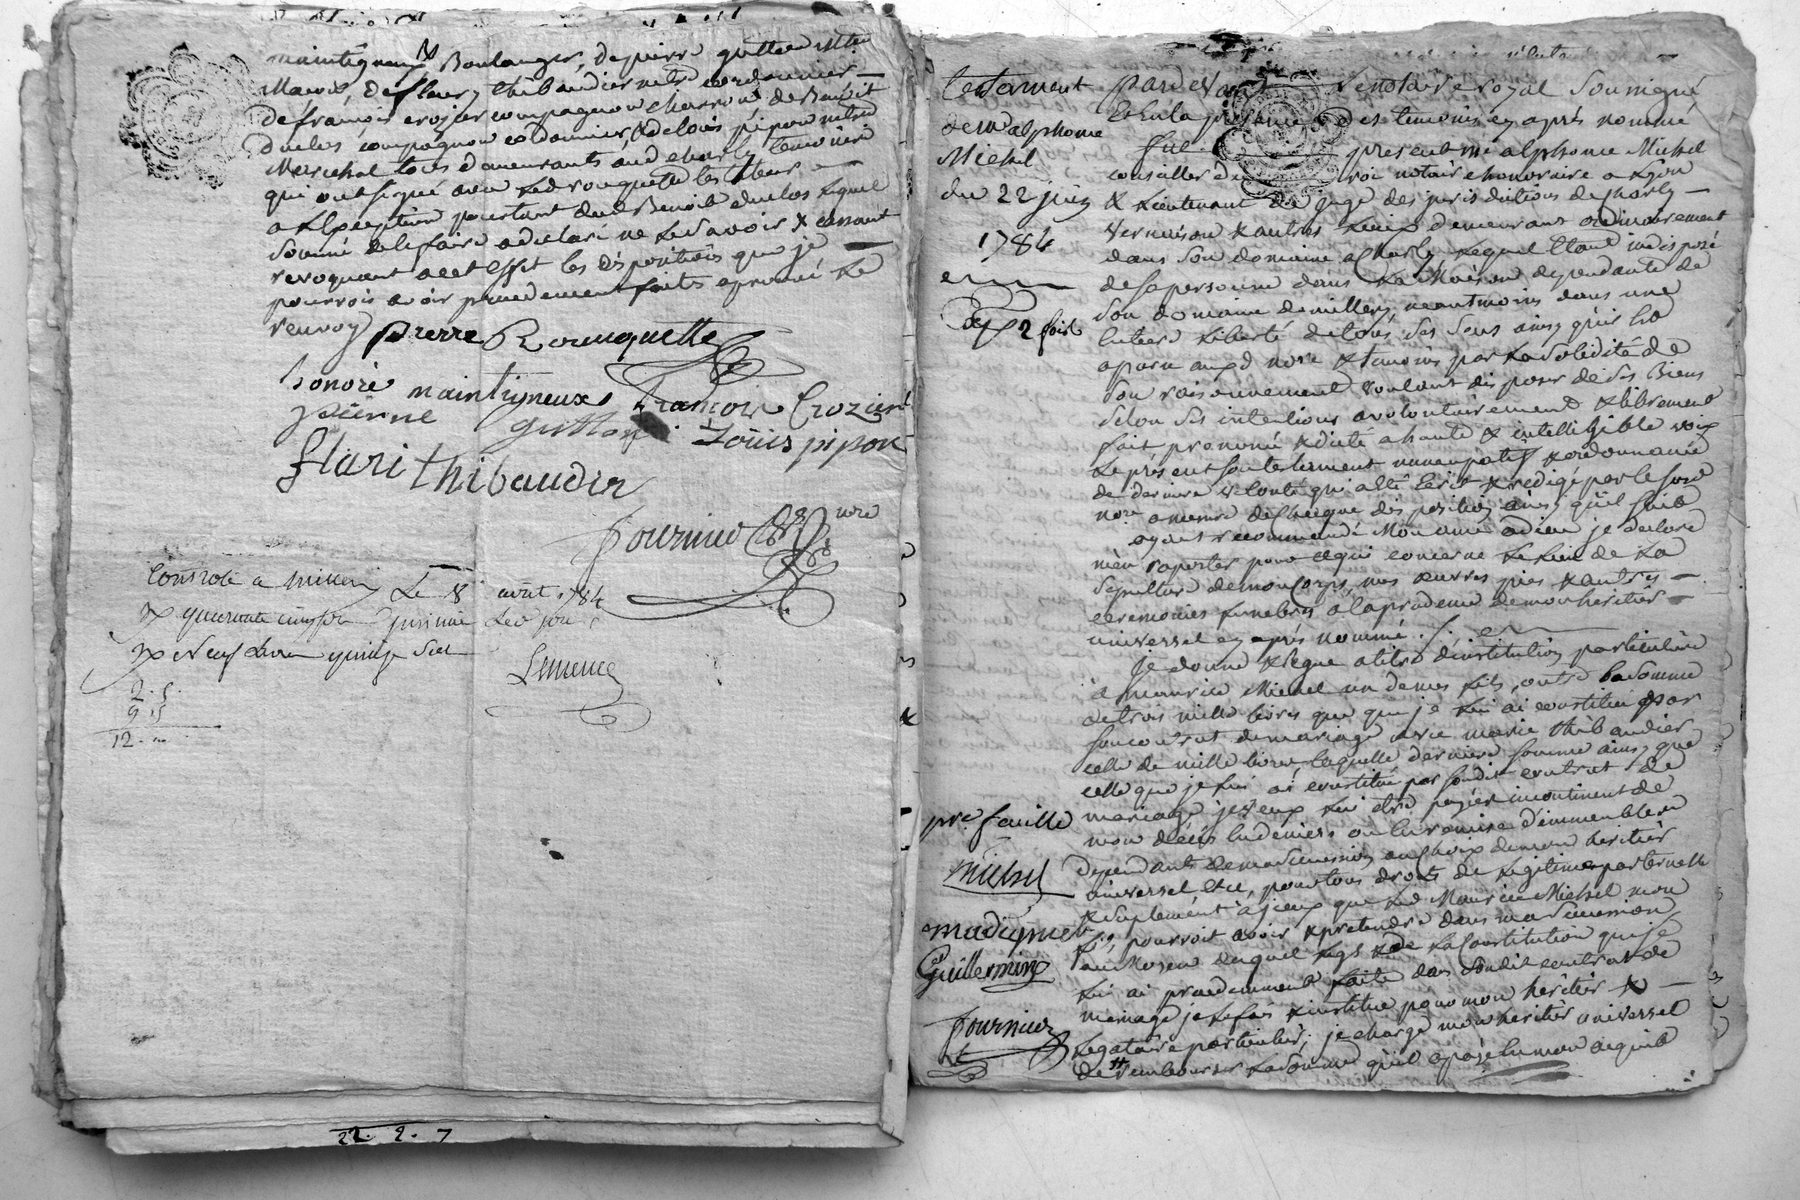 maintigneux Boulanger, de pierre guitton me
Maçon, de fleury thibaudier me cordonnier
de françois crozier compagnon charron de Benoit
duclos compagnon cordonnier & de loüis pipon me
Marechal tous demeurants aud charly temoins
qui ont signé avec led rouquette les
a l'exception pourtant dud Benoit duclos lequel
sommé de le faire a declaré ne le savoir &
revoquant a cet effet les dispositions que je
pourrois avoir precedement faites approuvé le
renvoy pierre Rouuquette
honoré maintigneux François Crozier
pierre guitton Loüis pipon
flari thibaudier
fournier nre
Controlé a millery Le 8 août 1784
Rx quarante cinq sols
Rx Neuf Livres quinze sols
2. 5.
9 15
12. ...
22. 2. 7
testament
de Me alphonse
Michel
du 22 juin
1784
exp 2 fois
pre faille
Michel
madignier
Guillermin
fournier
pardevant Le notaire royal soussigné
& en la presence des temoins cy après nommé
fut present me alphonse Michel
conseiller du roi notaire honoraire a Lyon
& Lieutenant de juge des jurisdictions de charly
vernaison & autres Lieux demeurant ordinairement
dans son domaine a Charly Lequel Etant indisposé
de sa personne dans La Maison dependante de
son domaine de millery, neantmoins dans une
entiere Liberté de tous ses sens ainsy qu'il ha
aparu aux d nore & temoins par La solidité de
son raisonnement voulant disposer de ses Biens
selon ses intentions a volontairement & librement
fait, prononcé & dicté a haute & intelligible voix
Le présent son testament nuncupatif & ordonnance
de derniere volonté qui a été Ecrit & redigé par le sus
nore a mesure de chaque disposition ainsy qu'il suit
ayant recommandé Mon ame a dieu je declare
m'en raporter pour ce qui concerne Le Lieu de La
sepulture de mon Corps, mes œuvres pies & autres
ceremonies funebres a la prudence de mon heritier
universel cy après nommé
Je donne & Legue a titre d'institution particuliere
a maurice Michel un de mes fils, outre La somme
de trois mille livres que je lui ai constitué par
son contrat de mariage avec marie thibaudier
celle de mille livres laquelle derniere somme ainsy que
celle que je lui ai constitué par sondit contrat de
mariage, je veux lui être payée incontinent
mon décès en deniers ou en remise d'immeubles
dependants de ma succession au choix de mon heritier
universel pour tous droits de Legitime paternelle
& suplement d'jceux que led Maurice Michel mon
fils pourroit avoir & pretendre dans ma succession
au Moyen duquel Legs & de La Constitution que je
Lui ai precedemment faite dans sondit contrat de
mariage je le fais & institue pour mon héritier &
Legataire particulier; je charge mon heritier universel
de rembourser La somme qu'il a payé en mon acquit